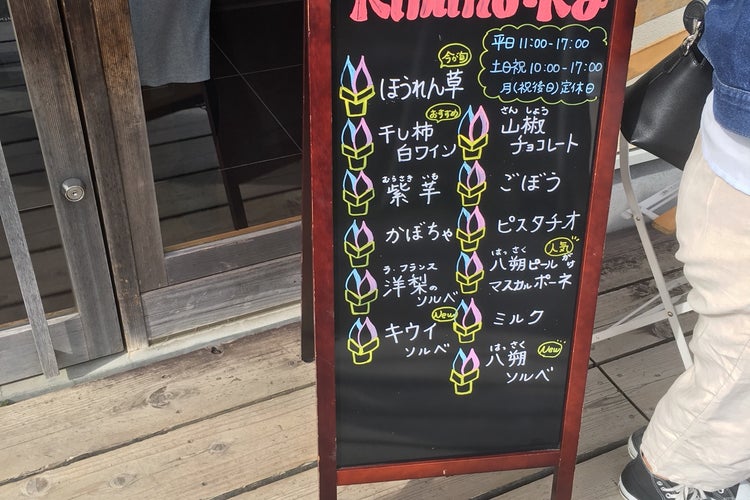 平日 11:00-17:00
土日祝 10:00-17:00
月(祝後日)定休日
今が旬
ほうれん草
おすすめ
干し柿
白ワイン
むらさき いも
紫芋
かぼちゃ
ラ・フランス
洋梨の
ソルベ
New
キウイ
ソルベ
さん しょう
山椒
チョコレート
ごぼう
ピスタチオ
人気
はっ さく
八朔ピールがけ
マスカルポーネ
ミルク
はっ さく
New
八朔
ソルベ